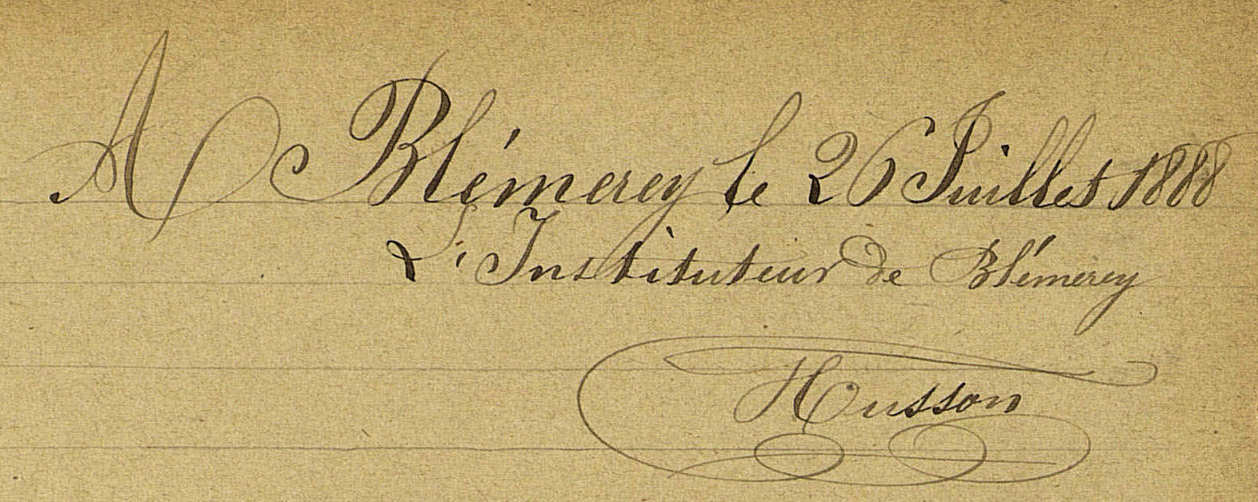 A Blémerey le 26 Juillet 1888
L'Instituteur de Blémerey
Husson